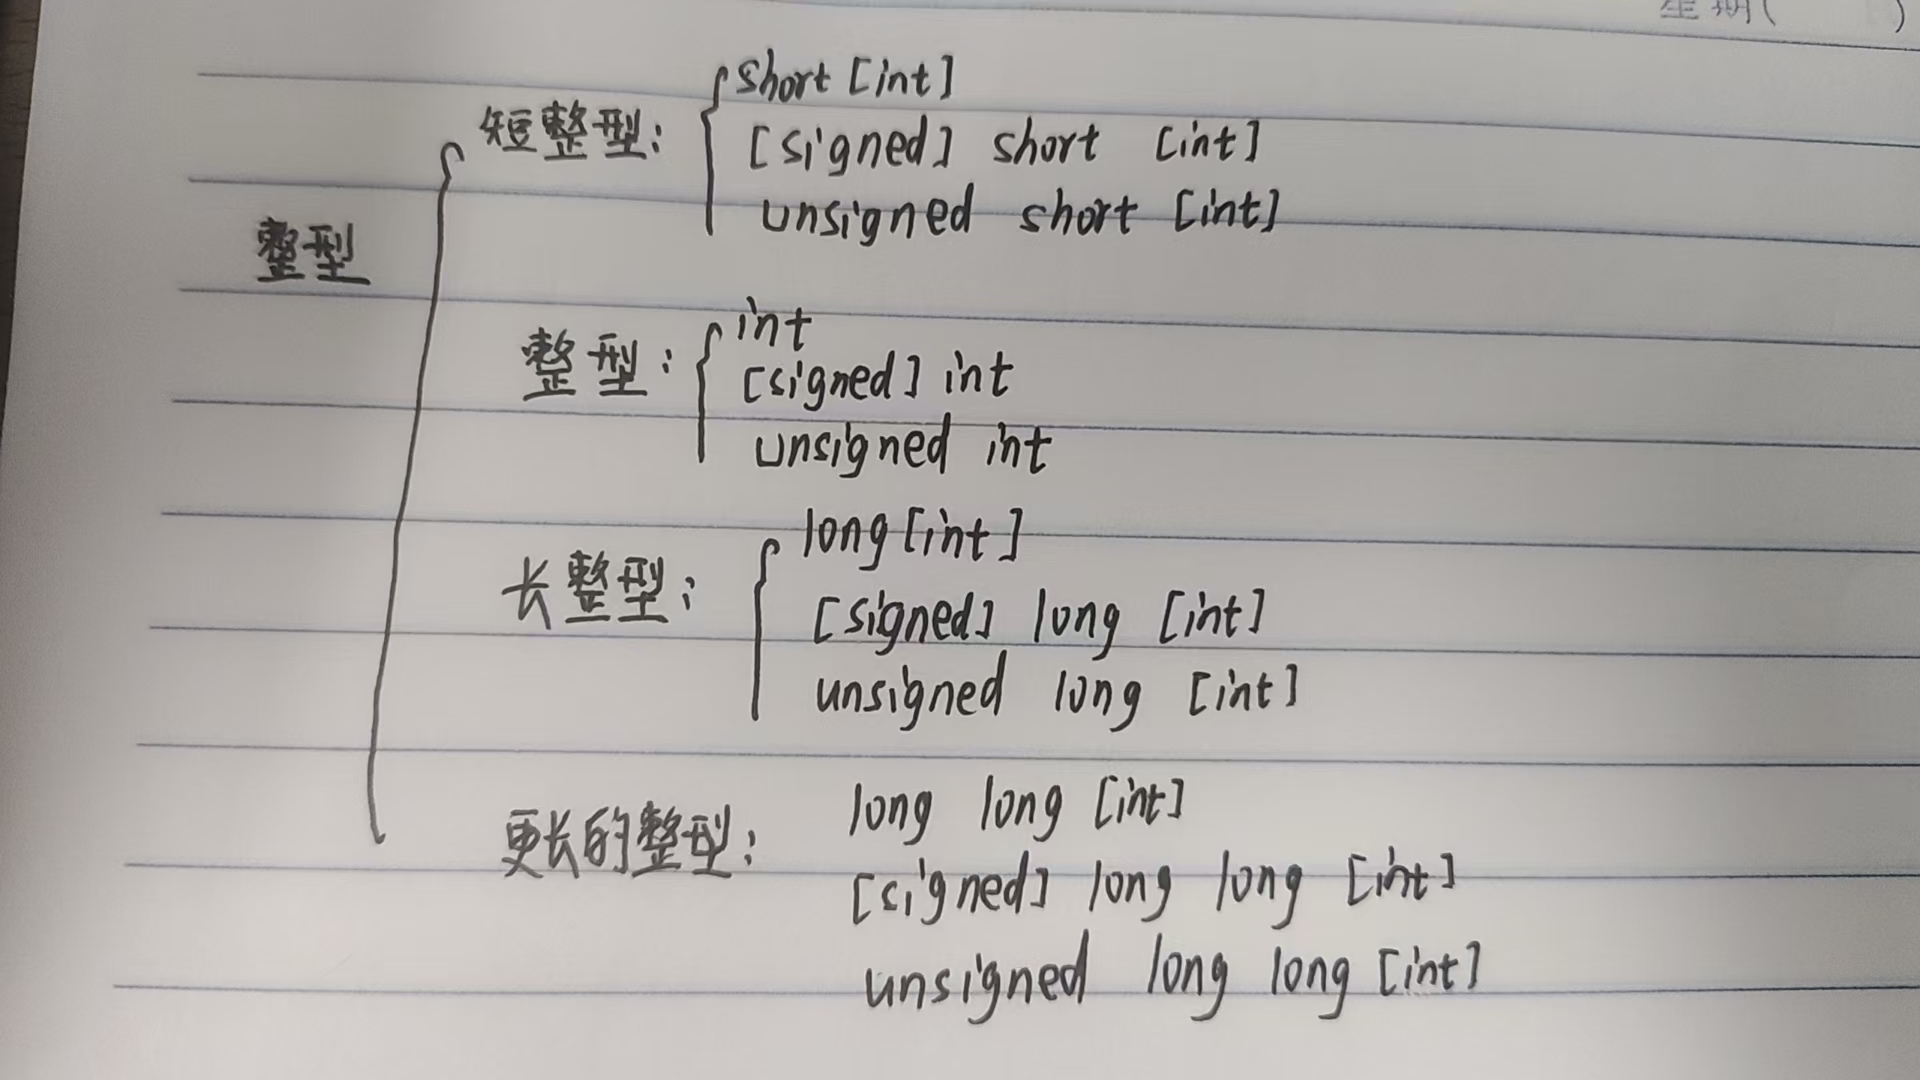 星期( )
短整型: short [int]
[signed] short [int]
unsigned short [int]
整型
整型: int
[signed] int
unsigned int
长整型: long [int]
[signed] long [int]
unsigned long [int]
更长的整型: long long [int]
[signed] long long [int]
unsigned long long [int]